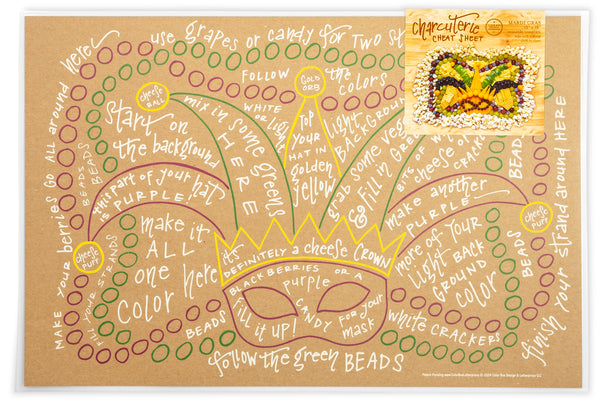 charcuterie
CHEAT SHEET
MARDI GRAS
use grapes or candy for two st
MAKE YOUR berries GO All around here
FOLLOW the colors
GOLD ORB
cheese BALL
mix in some greens HERE
WHITE OR light
light BACKGROUND
TOP YOUR HAT IN golden yellow
Start on the background
grab some veg
& fill'n Green
BITS OF W
cheese o
CRACKERS
BEADS
BEADS
BEADS
this part of your hat is PURPLE!
make another PURPLE
cheese PUFF
cheese PUFF
make it ALL one COLOR here
it's DEFINITELY a cheese CROWN
more of your light BACK GROUND COLOR
BLACKBERRIES OR a purple CANDY FOR your mask
fill it up!
FILL YOUR STRANDS
BEADS
white CRACKERS
BEADS
follow the green BEADS
finish your strand around HERE